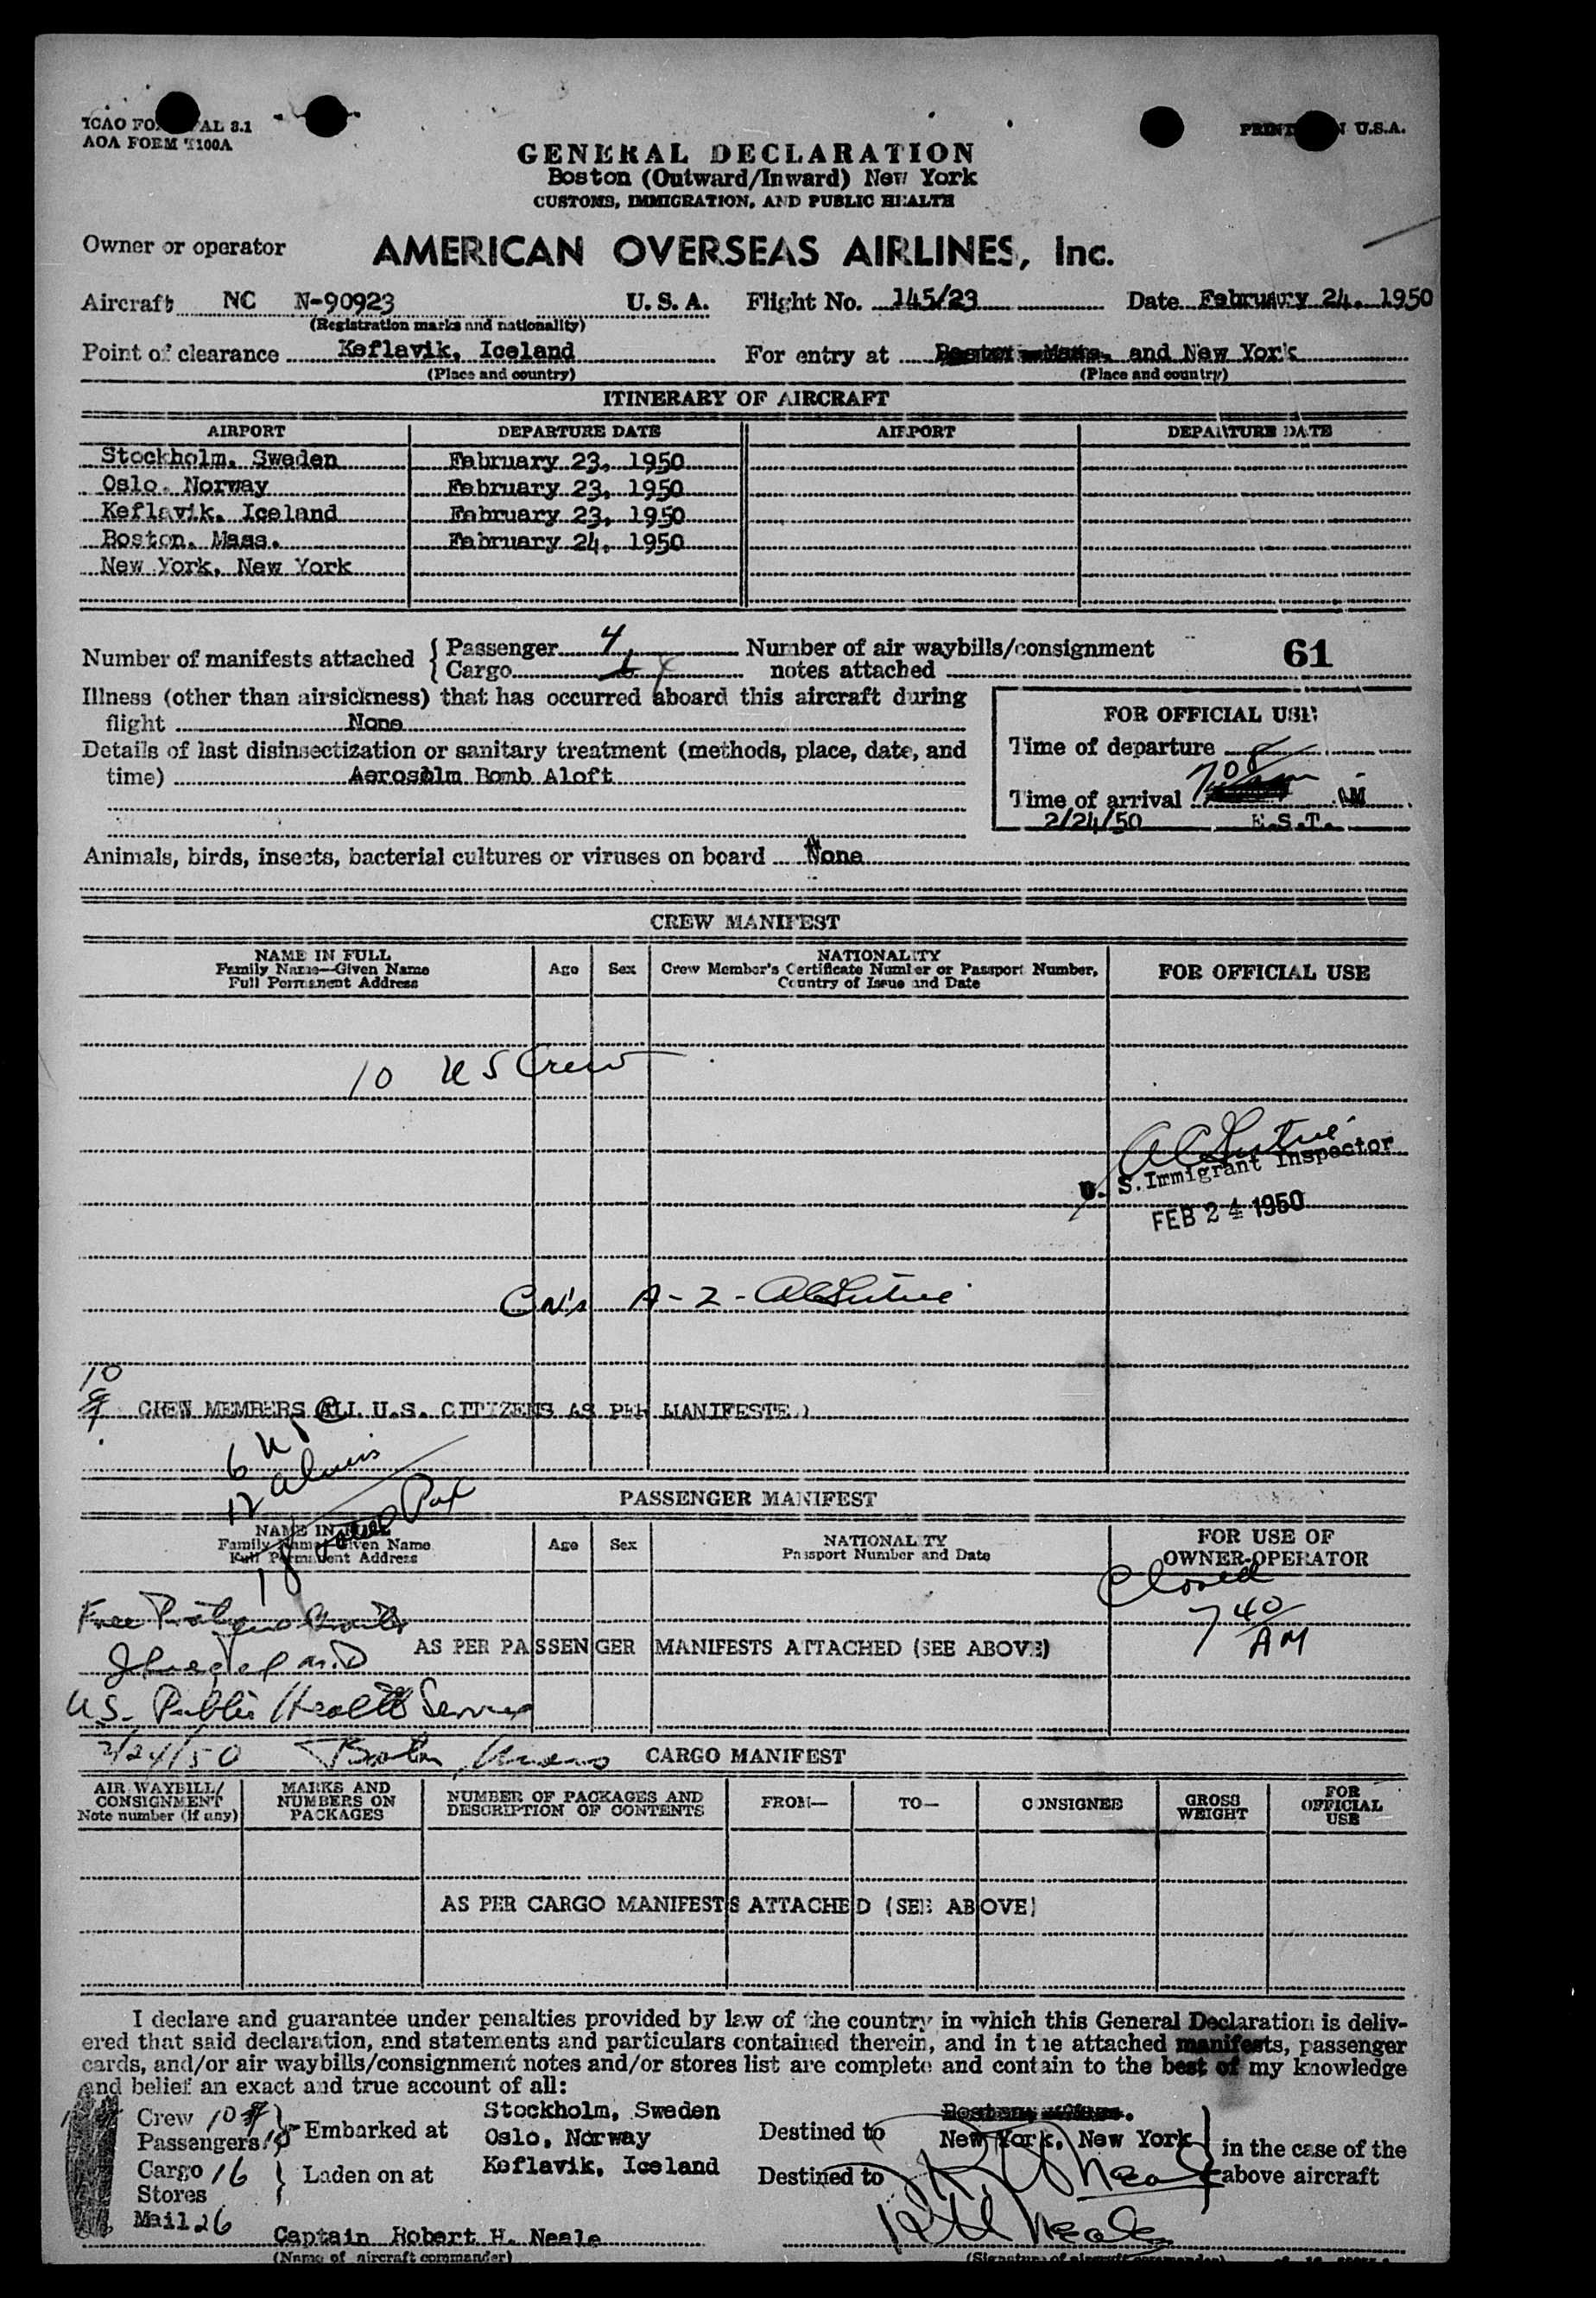 ICAO FO AL 3.1
AOA FORM T100A
PRINT N U.S.A.
GENERAL DECLARATION
Boston (Outward/Inward) New York
CUSTOMS, IMMIGRATION, AND PUBLIC HEALTH
Owner or operator AMERICAN OVERSEAS AIRLINES, Inc.
Aircraft NC N-90923 U. S. A. Flight No. 145/23 Date February 24. 1950
(Registration marks and nationality)
Point of clearance Keflavik, Iceland For entry at Boston Mass. and New York
(Place and country) (Place and country)
ITINERARY OF AIRCRAFT
AIRPORT DEPARTURE DATE AIRPORT DEPARTURE DATE
Stockholm, Sweden February 23, 1950
Oslo. Norway February 23, 1950
Keflavik. Iceland February 23, 1950
Boston. Mass. February 24, 1950
New York, New York
Number of manifests attached { Passenger 4 Number of air waybills/consignment 61
Cargo notes attached
Illness (other than airsickness) that has occurred aboard this aircraft during
flight None
FOR OFFICIAL USE
Details of last disinsectization or sanitary treatment (methods, place, date, and
time) Aerosolm Bomb Aloft
Time of departure
708
Time of arrival AM
2/24/50 E.S.T.
Animals, birds, insects, bacterial cultures or viruses on board None
CREW MANIFEST
NAME IN FULL
Family Name—Given Name
Full Permanent Address
Age Sex
NATIONALITY
Crew Member's Certificate Number or Passport Number,
Country of Issue and Date
FOR OFFICIAL USE
10 US Crew
U. S. Immigrant Inspector
FEB 24 1950
A-2-
10
9
CREW MEMBERS ALL U.S. CITIZENS AS PER MANIFESTED
6 US C
12 aliens
18 total Pax
PASSENGER MANIFEST
NAME IN FULL
Family Name Given Name
Full Permanent Address
Age Sex
NATIONALITY
Passport Number and Date
FOR USE OF
OWNER-OPERATOR
Closed
7 40
AM
Free Pratique
AS PER PASSENGER MANIFESTS ATTACHED (SEE ABOVE)
M.D
U.S. Public Health Service
2/24/50 Boston, Mass
CARGO MANIFEST
AIR WAYBILL/
CONSIGNMENT
Note number (if any)
MARKS AND
NUMBERS ON
PACKAGES
NUMBER OF PACKAGES AND
DESCRIPTION OF CONTENTS
FROM— TO— CONSIGNEE
GROSS
WEIGHT
FOR
OFFICIAL
USE
AS PER CARGO MANIFESTS ATTACHED (SEE ABOVE)
I declare and guarantee under penalties provided by law of the country in which this General Declaration is deliv-
ered that said declaration, and statements and particulars contained therein, and in the attached manifests, passenger
cards, and/or air waybills/consignment notes and/or stores list are complete and contain to the best of my knowledge
and belief an exact and true account of all:
Crew 10
Passengers 18
} Embarked at
Stockholm, Sweden
Oslo, Norway
Keflavik, Iceland
Destined to
Boston, Mass.
New York, New York
Cargo 16
Stores
Mail 26
} Laden on at
Destined to
} in the case of the
above aircraft
R H Neale
Captain Robert H. Neale
R H Neale
(Name of aircraft commander) (Signature of aircraft commander)